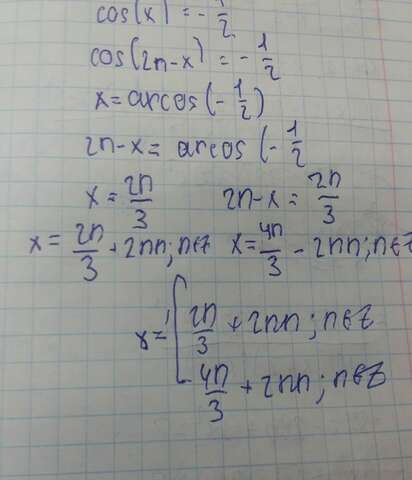 cos(x) = - 1/2
cos(2π-x) = - 1/2
x = arccos(- 1/2)
2π-x = arccos(- 1/2
x = 2π/3 2π-x = 2π/3
x = 2π/3 + 2πn; n∈Z x = 4π/3 - 2πn; n∈Z
x = [ 2π/3 + 2πn; n∈Z
4π/3 + 2πn; n∈Z